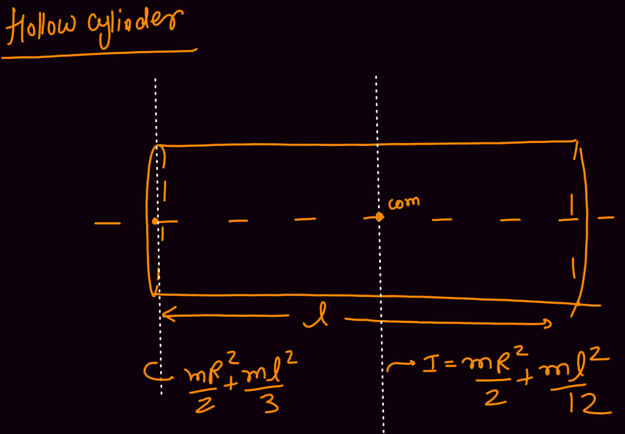 Hollow cylinder
com
l
mR²/2 + ml²/3
I = mR²/2 + ml²/12